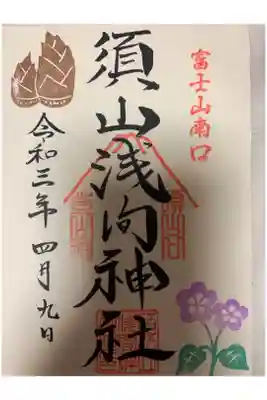 富士山南口
須山浅间神社
令和三年 四月九日